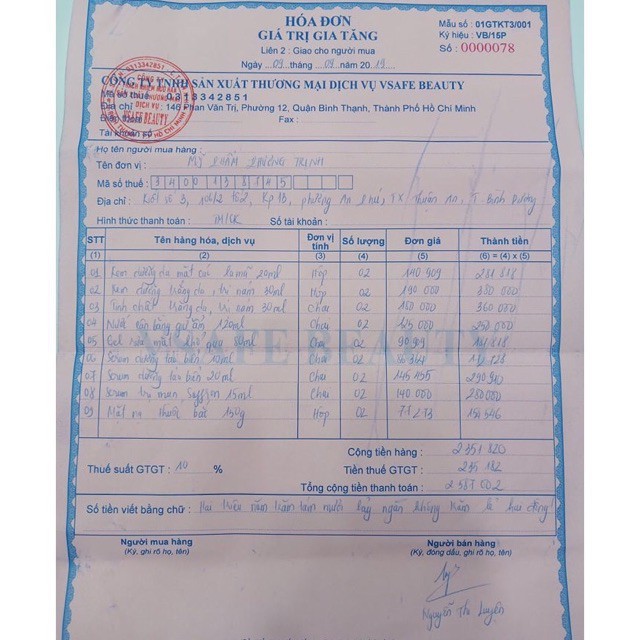 HÓA ĐƠN
GIÁ TRỊ GIA TĂNG
Liên 2 : Giao cho người mua
Ngày 09 tháng 09 năm 2019
Mẫu số : 01GTKT3/001
Ký hiệu : VB/15P
Số : 0000078
CÔNG TY TNHH SẢN XUẤT THƯƠNG MẠI DỊCH VỤ VSAFE BEAUTY
Mã số thuế : 0313342851
Địa chỉ : 146 Phan Văn Trị, Phường 12, Quận Bình Thạnh, Thành Phố Hồ Chí Minh
Điện thoại : Fax :
Tài khoản số :
Họ tên người mua hàng :
Tên đơn vị : MỸ PHẨM TRƯỜNG TRỊNH
Mã số thuế :
Địa chỉ : Kp 1B, phường An Phú, TX Thuận An, T. Bình Dương
Hình thức thanh toán : TM/CK Số tài khoản :
STT Tên hàng hóa, dịch vụ Đơn vị tính Số lượng Đơn giá Thành tiền
(1) (2) (3) (4) (5) (6) = (4) x (5)
01 Kem dưỡng da mặt 20ml Hộp 02 140 909 281 818
02 Kem dưỡng trắng da, trị nám 30ml Hộp 02 190 000 380 000
03 Tinh chất trắng da, trị nám 30ml Chai 02 180 000 360 000
04 Nước cân bằng giữ ẩm 120ml Chai 02 125 000 250 000
05 Gel rửa mặt Chai 02 90 909 181 818
06 Serum dưỡng tảo biển 10ml Chai 02
07 Serum dưỡng tảo biển 20ml Chai 02 145 455 290 910
08 Serum trị mụn Saffron 15ml Chai 02 140 000 280 000
09 Mặt nạ thuốc bắc 150g Hộp 02 78 273 156 546
VSAFE BEAUTY
Cộng tiền hàng : 2 351 820
Thuế suất GTGT : 10 % Tiền thuế GTGT : 235 182
Tổng cộng tiền thanh toán : 2 587 002
Số tiền viết bằng chữ : Hai triệu năm trăm tám mươi bảy ngàn không trăm lẻ hai đồng
Người mua hàng Người bán hàng
(Ký, ghi rõ họ, tên) (Ký, đóng dấu, ghi rõ họ, tên)
Nguyễn Thị Luyện